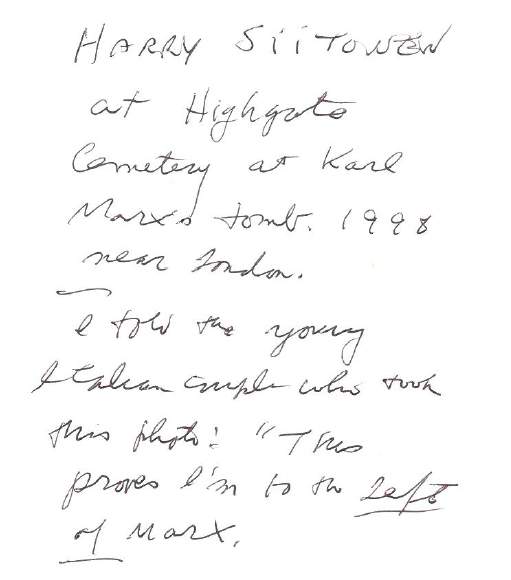 HARRY SiiTONEN
at Highgate
Cemetery at Karl
Marx's tomb. 1998
near London.
I told the young
Italian couple who took
this photo: "This
proves I'm to the Left
of Marx.